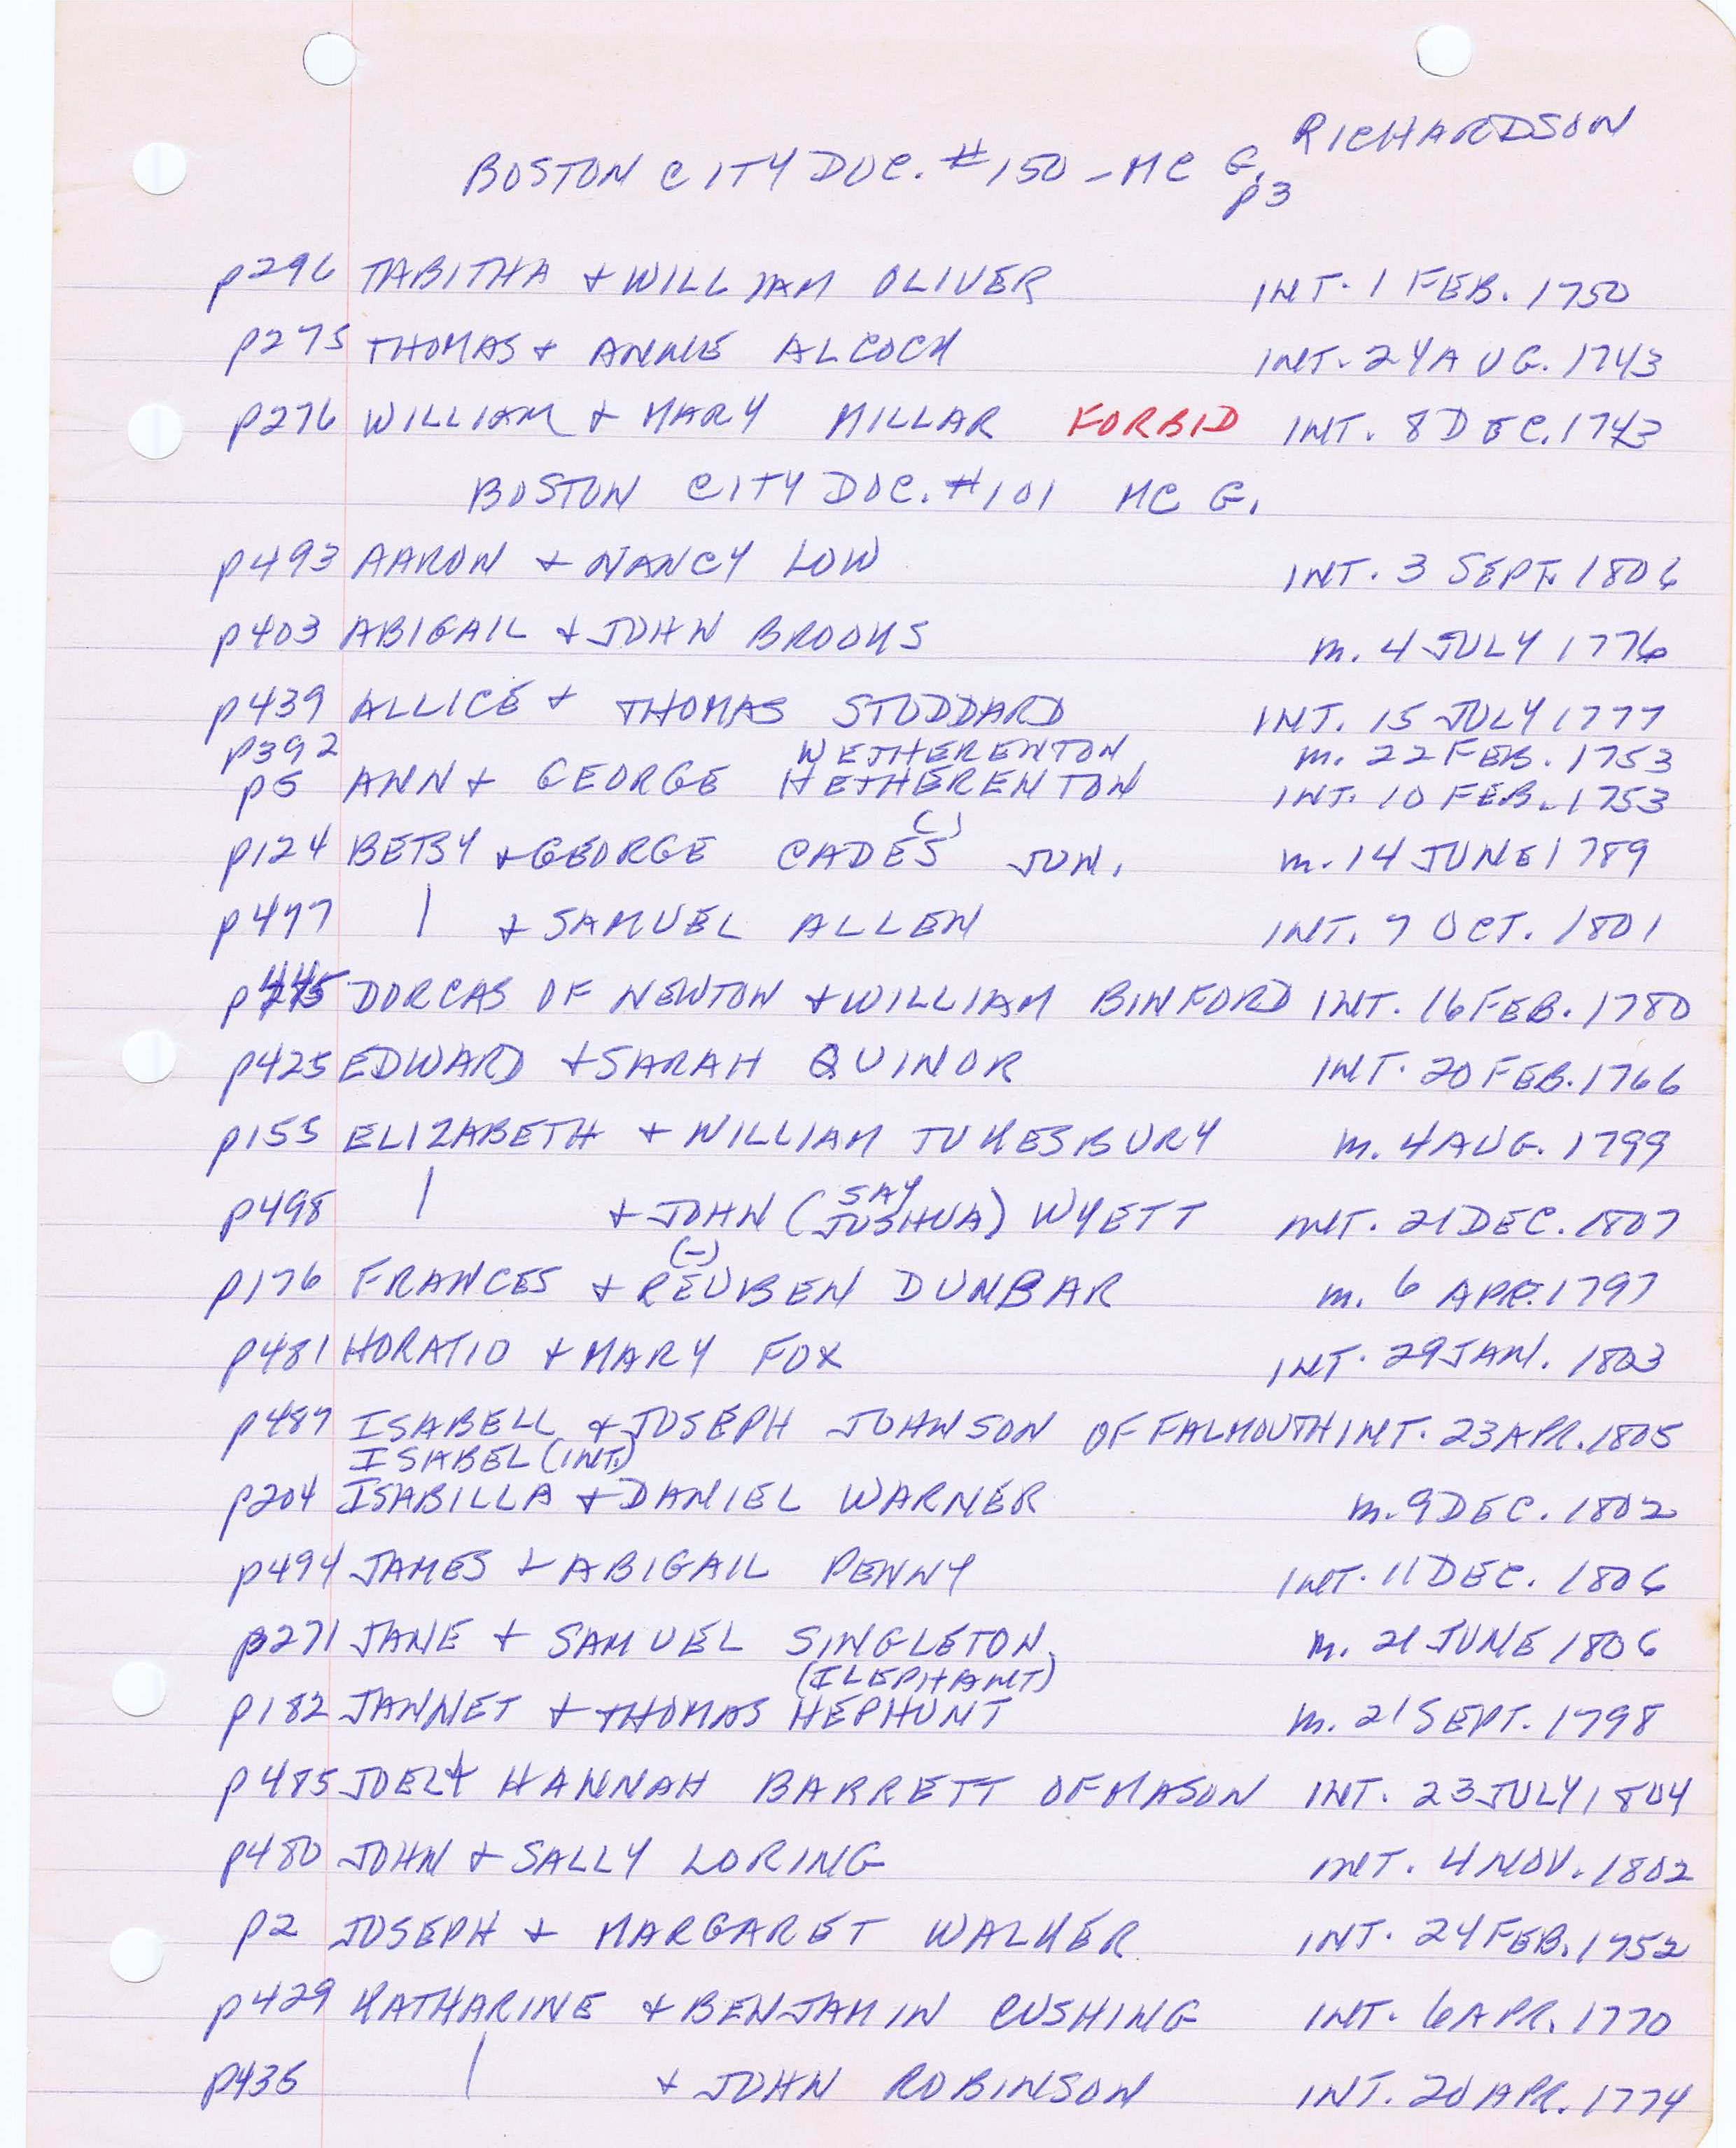 RICHARDSON
BOSTON CITY DOC. #150 - MC G. p3
p296 TABITHA + WILLIAM OLIVER INT. 1 FEB. 1750
p275 THOMAS + ANNIE ALCOCK INT. 24 AUG. 1743
p276 WILLIAM + MARY MILLAR FORBID INT. 8 DEC. 1743
BOSTON CITY DOC. #101 MC G.
p493 AARON + NANCY LOW INT. 3 SEPT. 1806
p403 ABIGAIL + JOHN BROOKS m. 4 JULY 1776
p439 ALLICE + THOMAS STODDARD INT. 15 JULY 1777
p392 WETHERENTON m. 22 FEB. 1753
p5 ANN + GEORGE HETHERENTON INT. 10 FEB. 1753
p124 BETSY + GEORGE CADES JUN. m. 14 JUNE 1789
p477 | + SAMUEL ALLEN INT. 7 OCT. 1801
p445 DORCAS OF NEWTON + WILLIAM BINFORD INT. 16 FEB. 1780
p425 EDWARD + SARAH QUINOR INT. 20 FEB. 1766
p155 ELIZABETH + WILLIAM TUKESBURY m. 4 AUG. 1799
SAY
p498 | + JOHN (JOSHUA) WYETT INT. 21 DEC. 1807
(-)
p176 FRANCES + REUBEN DUNBAR m. 6 APR. 1797
p481 HORATIO + MARY FOX INT. 29 JAN. 1803
p487 ISABELL + JOSEPH JOHNSON OF FALMOUTH INT. 23 APR. 1805
ISABEL (INT.)
p204 ISABILLA + DANIEL WARNER m. 9 DEC. 1802
p494 JAMES + ABIGAIL PENNY INT. 11 DEC. 1806
p271 JANE + SAMUEL SINGLETON m. 21 JUNE 1806
(ILEPHANT)
p182 JANNET + THOMAS HEPHUNT m. 21 SEPT. 1798
p485 JOEL + HANNAH BARRETT OF MASON INT. 23 JULY 1804
p480 JOHN + SALLY LORING INT. 4 NOV. 1802
p2 JOSEPH + MARGARET WALKER INT. 24 FEB. 1752
p429 KATHARINE + BENJAMIN CUSHING INT. 6 APR. 1770
p435 | + JOHN ROBINSON INT. 20 APR. 1774